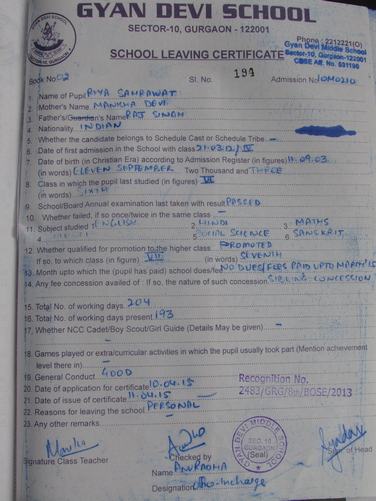 GYAN DEVI SCHOOL
SECTOR-10, GURGAON - 122001
Phone : 2212221(O)
Gyan Devi Middle School
Sector-10, Gurgaon-122001
CBSE Aff. No. 531196
SCHOOL LEAVING CERTIFICATE
Book No 02 Sl. No. 194 Admission No 10M0210
1. Name of Pupil RIYA SAHRAWAT
2. Mother's Name MANISHA DEVI
3. Father's/Guardian's Name RAJ SINGH
4. Nationality INDIAN
5. Whether the candidate belongs to Schedule Cast or Schedule Tribe –
6. Date of first admission in the School with class 21.03.12/IV
7. Date of birth (in Christian Era) according to Admission Register (in figures) 11.09.03
(in words) ELEVEN SEPTEMBER Two Thousand and THREE
8. Class in which the pupil last studied (in figures) VI
(in words) SIXTH
9. School/Board Annual examination last taken with result PASSED
10. Whether failed, if so once/twice in the same class –
11. Subject studied 1 ENGLISH 2 HINDI 3 MATHS
4 5 SOCIAL SCIENCE 6 SANSKRIT
12. Whether qualified for promotion to the higher class PROMOTED
If so, to which class (in figure) VII (in words) SEVENTH
13. Month upto which the (pupil has paid) school dues/fee NO DUES/FEES PAID UPTO MARCH'15
14. Any fee concession availed of : If so, the nature of such concession SIBLING CONCESSION
15. Total No. of working days 204
16. Total No. of working days present 193
17. Whether NCC Cadet/Boy Scout/Girl Guide (Details May be given) –
18. Games played or extra/curricular activities in which the pupil usually took part (Mention achievement
level there in) –
19. General Conduct GOOD
20. Date of application for certificate 10.04.15
21. Date of issue of certificate 11.04.15
22. Reasons for leaving the school PERSONAL
23. Any other remarks
Recognition No.
2483/GRG/8th/BOSE/2013
GYAN DEVI MIDDLE SCHOOL
SEC. 10
GURGAON
(Seal)
Signature Class Teacher Checked by of Head
Name ANURADHA
Designation Incharge